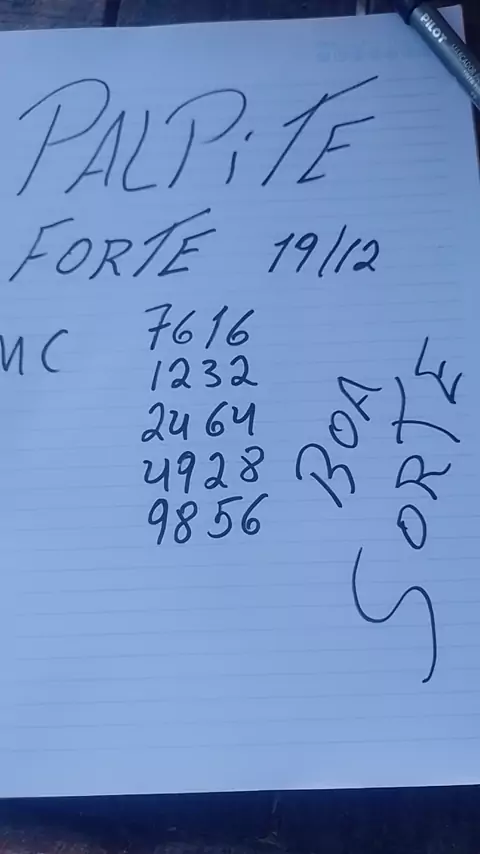 PILOT
PALPiTE
FORTE 19/12
MC 7616
1232
2464
4928
9856
BOA
SORTE